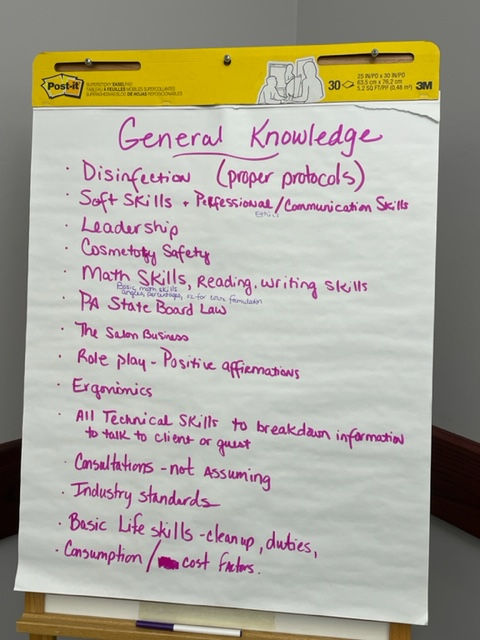 Post-it
SUPERSTICKY EASEL PAD
TABLEAU À FEUILLES MOBILES SUPERCOLLANTES
SUPERROTAFOLIO DE HOJAS REPOSICIONABLES
30
25 IN/PO x 30 IN/PO
63,5 cm x 76,2 cm
5.2 SQ FT/PI² (0,48 m²)
3M
General Knowledge
· Disinfection (proper protocols)
· Soft Skills + Perfessional/Communication Skills
Ethics
· Leadership
· Cosmetology Safety
· Math Skills, Reading, writing skills
Basic math skills
angles, percentages, oz for color formulation
· PA State Board Law
· The Salon Business
· Role play - Positive affirmations
· Ergonimics
· All Technical Skills to breakdown information
to talk to client or guest
· Consultations - not Assuming
· Industry standards
· Basic Life skills - cleanup, duties,
· Consumption / cost factors.